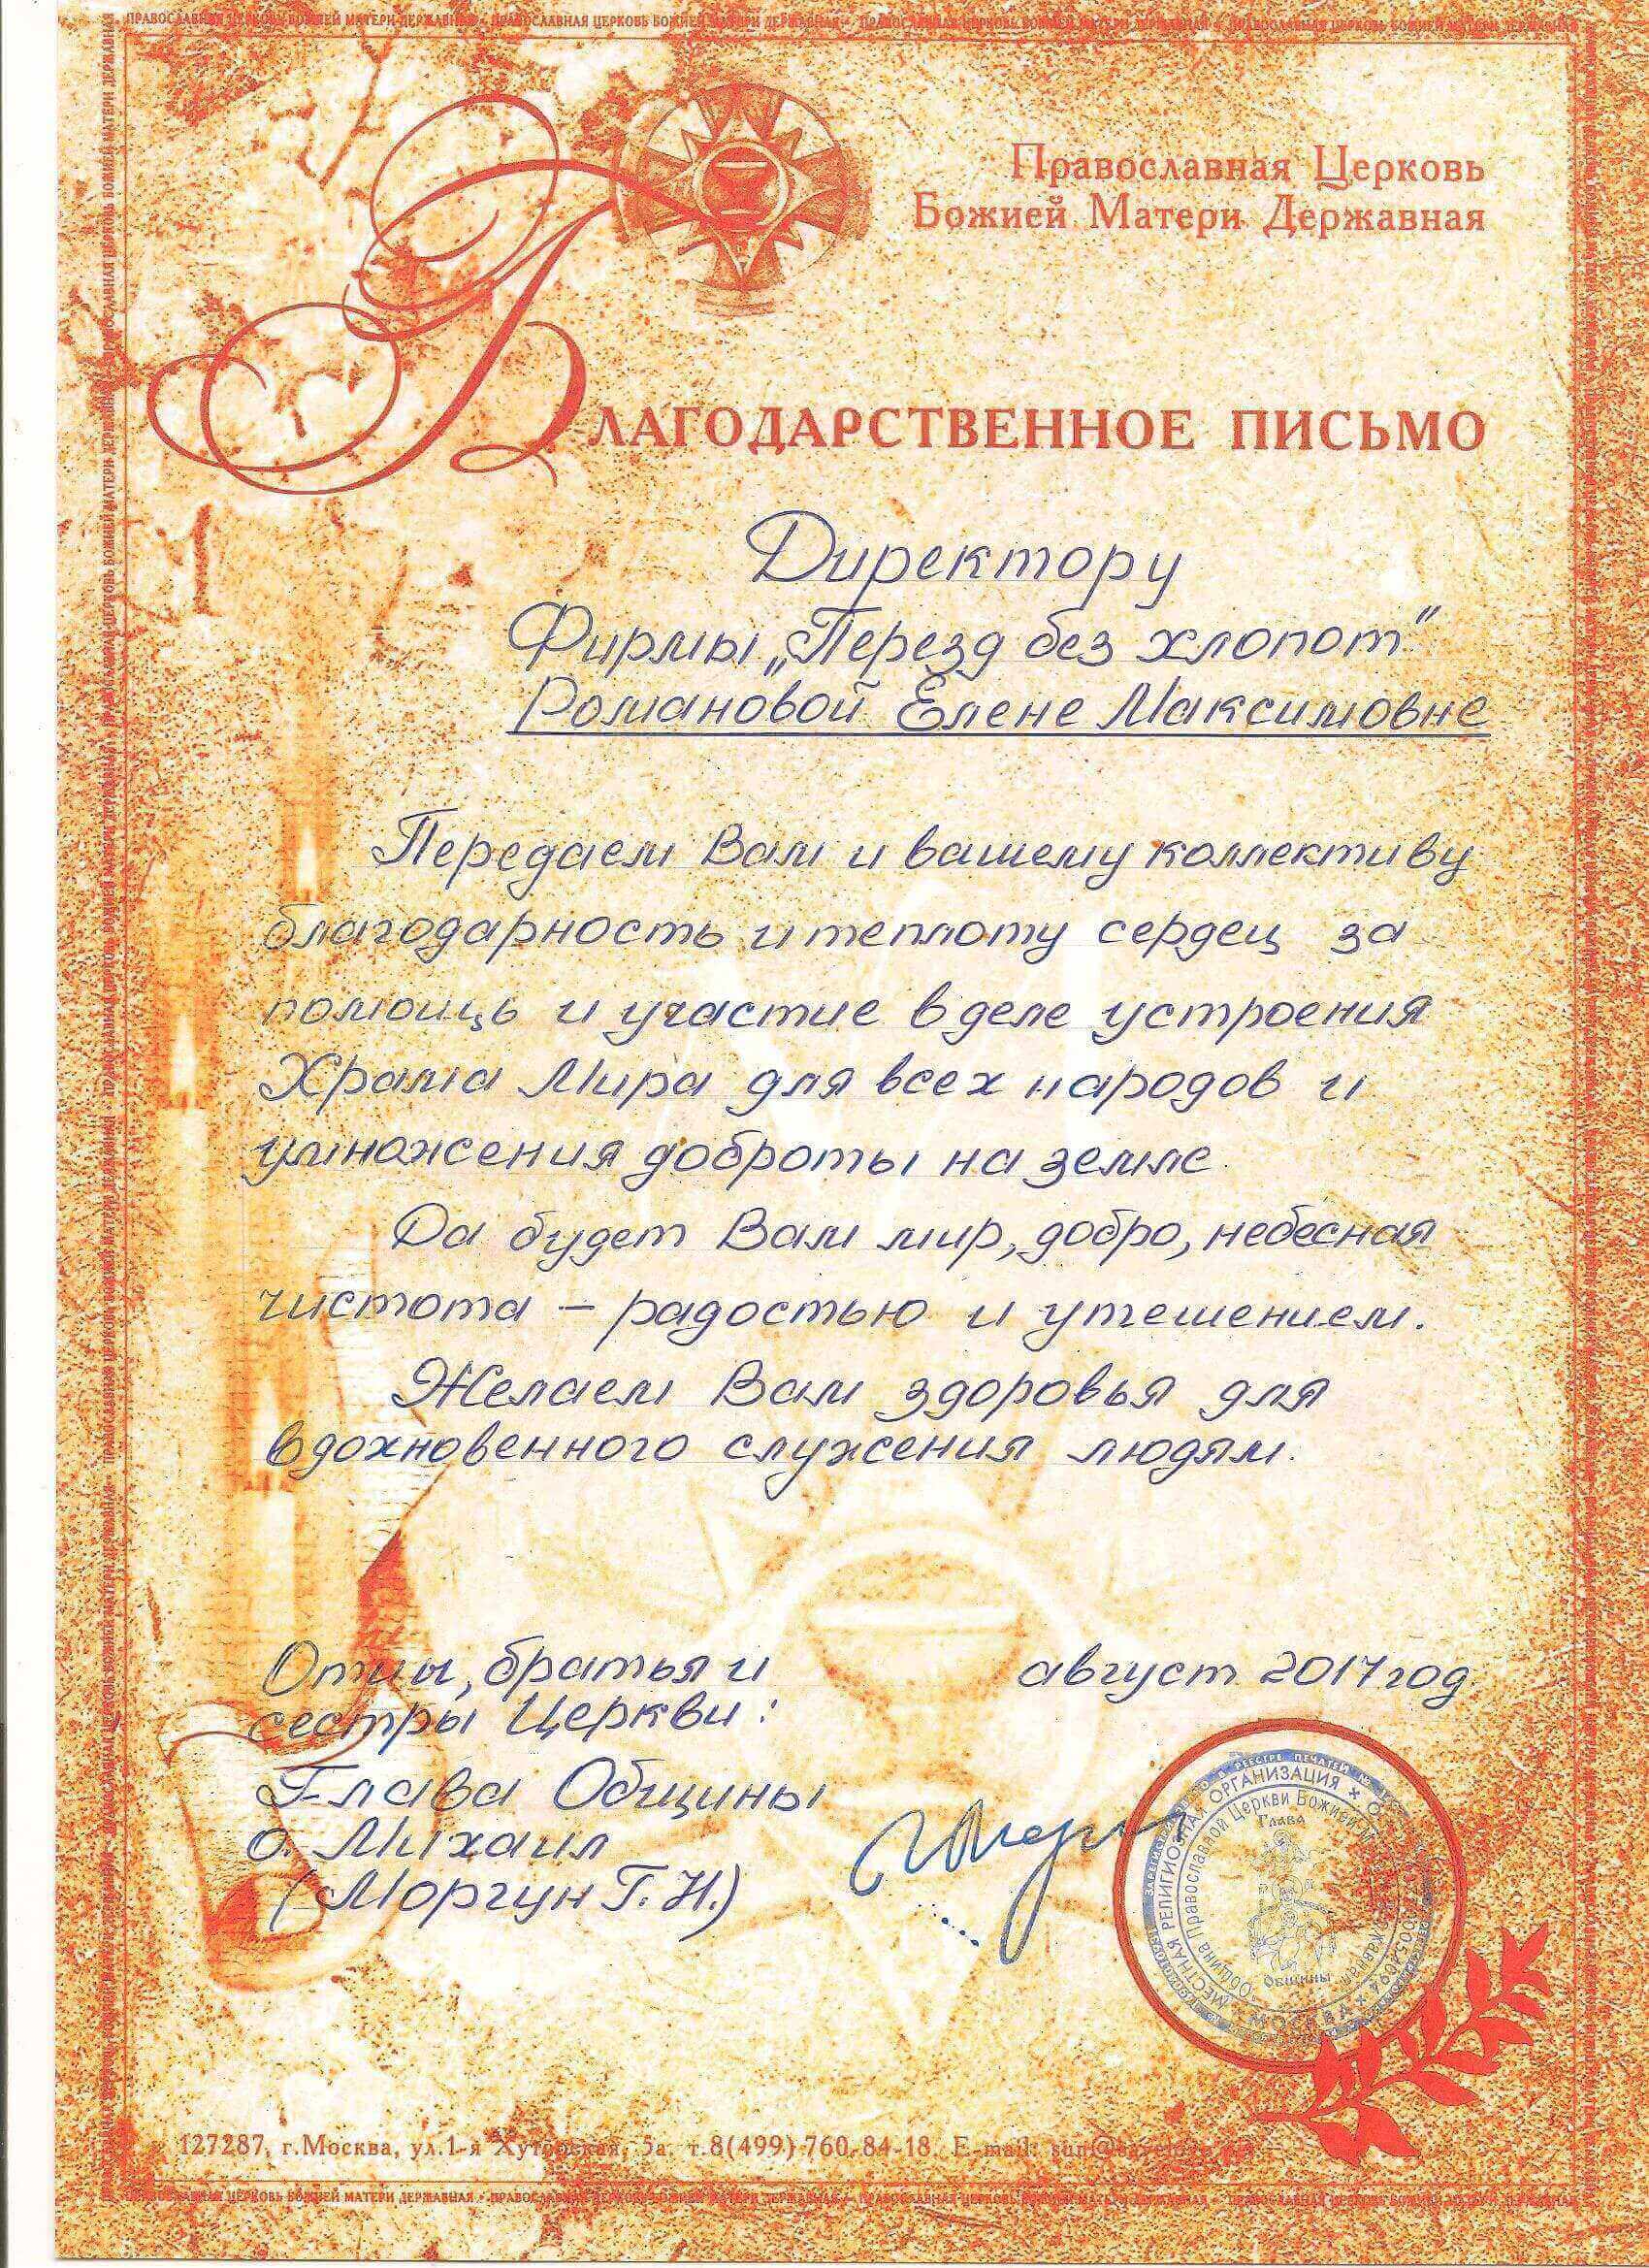 ПРАВОСЛАВНАЯ ЦЕРКОВЬ БОЖИЕЙ МАТЕРИ ДЕРЖАВНАЯ • ПРАВОСЛАВНАЯ ЦЕРКОВЬ БОЖИЕЙ МАТЕРИ ДЕРЖАВНАЯ • ПРАВОСЛАВНАЯ ЦЕРКОВЬ БОЖИЕЙ МАТЕРИ ДЕРЖАВНАЯ • ПРАВОСЛАВНАЯ ЦЕРКОВЬ БОЖИЕЙ МАТЕРИ ДЕРЖАВНАЯ
Православная Церковь
Божией Матери Державная
БЛАГОДАРСТВЕННОЕ ПИСЬМО
Директору
Фирмы „Перезд без хлопот"
Романовой Елене Максимовне
Передаем Вам и вашему коллективу
благодарность и теплоту сердец за
помощь и участие в деле устроения
Храма Мира для всех народов и
умножения доброты на земле.
Да будет Вам мир, добро, небесная
чистота – радостью и утешением.
Желаем Вам здоровья для
вдохновенного служения людям.
Отцы, братья и
сестры Церкви:
август 2017 год
Глава Общины
о. Михаил
(Моргун Г. И.)
МЕСТНАЯ РЕЛИГИОЗНАЯ ОРГАНИЗАЦИЯ
Община Православной Церкви Божией
Глава
Общины
МОСКВА
127287, г.Москва, ул.1-я Хуторская, 5а. т.8(499) 760-84-18. E-mail:
ПРАВОСЛАВНАЯ ЦЕРКОВЬ БОЖИЕЙ МАТЕРИ ДЕРЖАВНАЯ • ПРАВОСЛАВНАЯ ЦЕРКОВЬ БОЖИЕЙ МАТЕРИ ДЕРЖАВНАЯ • ПРАВОСЛАВНАЯ ЦЕРКОВЬ БОЖИЕЙ МАТЕРИ ДЕРЖАВНАЯ • ПРАВОСЛАВНАЯ ЦЕРКОВЬ БОЖИЕЙ МАТЕРИ ДЕРЖАВНАЯ